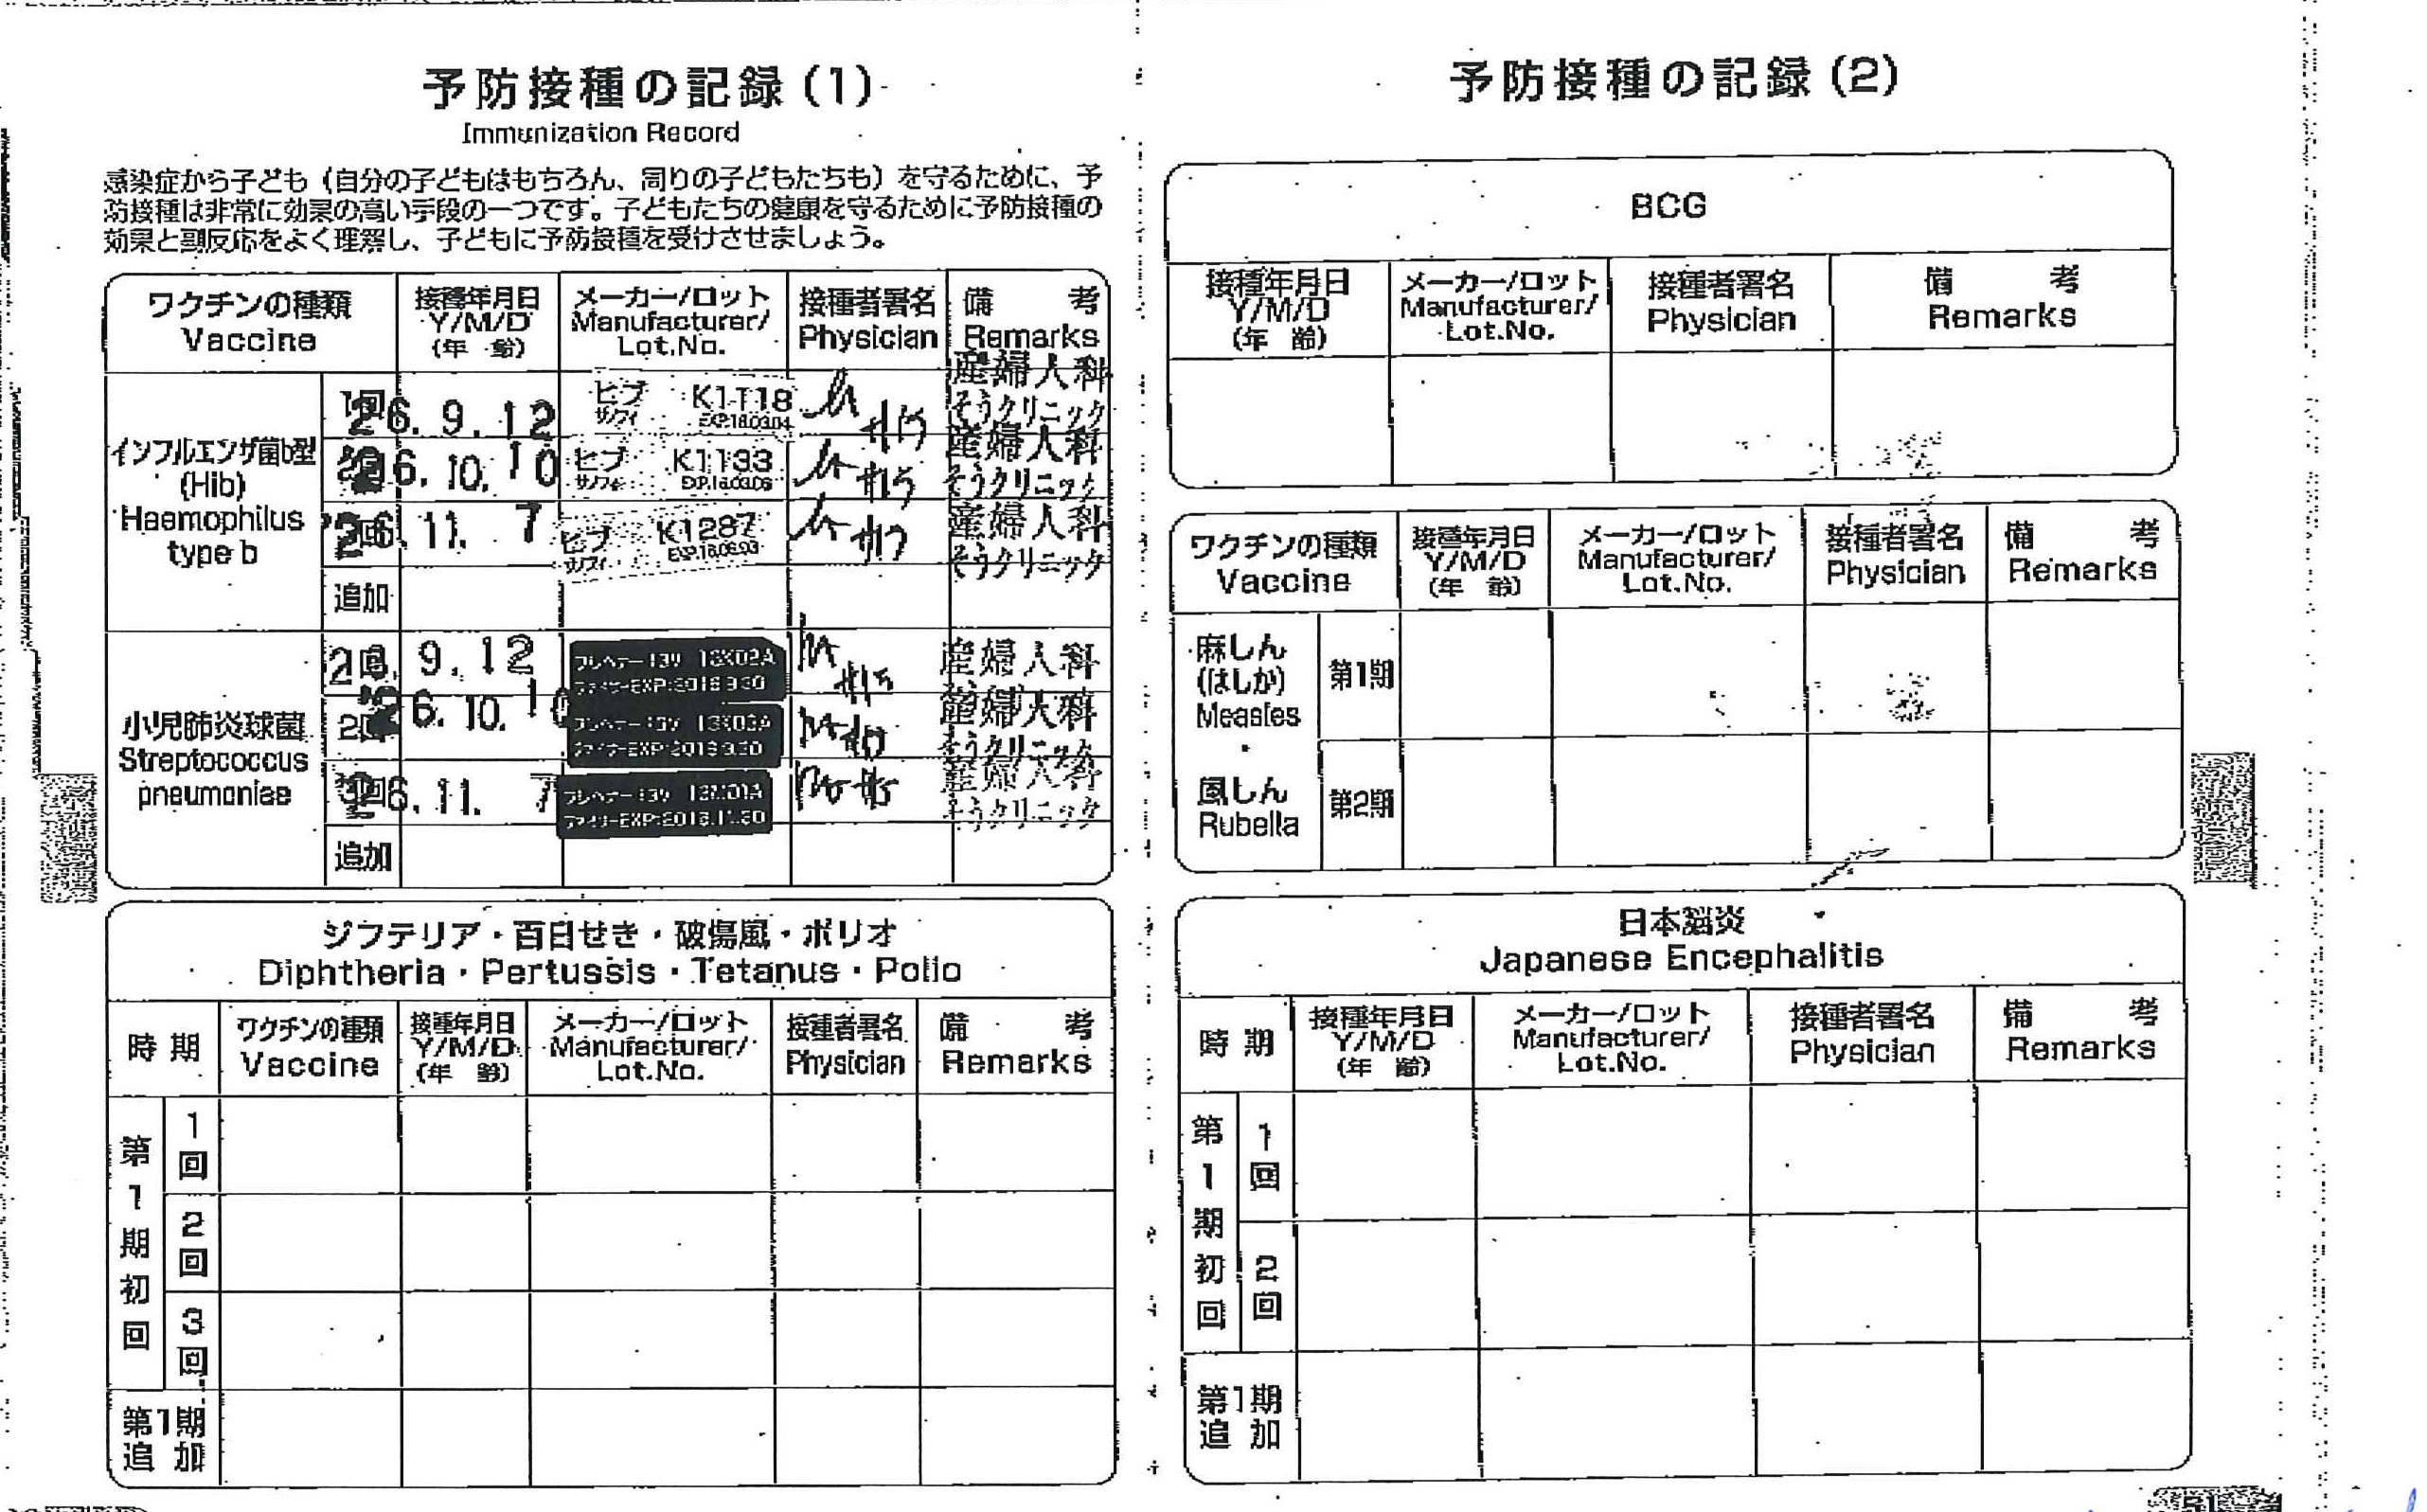 予防接種の記録(1)
Immunization Record
感染症から子ども(自分の子どもはもちろん、周りの子どもたちも)を守るために、予
防接種は非常に効果の高い手段の一つです。子どもたちの健康を守るために予防接種の
効果と副反応をよく理解し、子どもに予防接種を受けさせましょう。
ワクチンの種類 接種年月日 メーカー/ロット 接種者署名 備考
Vaccine Y/M/D Manufacturer/ Physician Remarks
(年 齢) Lot.No.
インフルエンザ菌b型
(Hib)
Haemophilus
type b
1回 26.9.12 ヒブ K1118 産婦人科
そうクリニック
26.10.10 ヒブ K1133 産婦人科
そうクリニック
26.11.7 ヒブ K1287 産婦人科
そうクリニック
追加
小児肺炎球菌
Streptococcus
pneumoniae
9.12 産婦人科
2回 26.10.10 産婦人科
そうクリニック
26.11.7 産婦人科
そうクリニック
追加
ジフテリア・百日せき・破傷風・ポリオ
Diphtheria・Pertussis・Tetanus・Polio
時期 ワクチンの種類 接種年月日 メーカー/ロット 接種者署名 備考
Vaccine Y/M/D Manufacturer/ Physician Remarks
(年 齢) Lot.No.
第1期初回
1回
2回
3回
第1期
追加
予防接種の記録(2)
BCG
接種年月日 メーカー/ロット 接種者署名 備考
Y/M/D Manufacturer/ Physician Remarks
(年 齢) Lot.No.
ワクチンの種類 接種年月日 メーカー/ロット 接種者署名 備考
Vaccine Y/M/D Manufacturer/ Physician Remarks
(年 齢) Lot.No.
麻しん
(はしか)
Measles
・
風しん
Rubella
第1期
第2期
日本脳炎
Japanese Encephalitis
時期 接種年月日 メーカー/ロット 接種者署名 備考
Y/M/D Manufacturer/ Physician Remarks
(年 齢) Lot.No.
第1期初回
1回
2回
第1期
追加